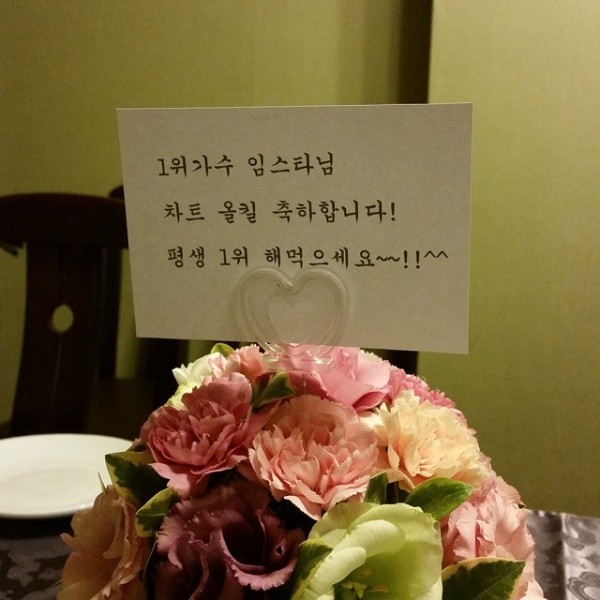 1위가수 임스타님
차트 올킬 축하합니다!
평생 1위 해먹으세요~~!!^^